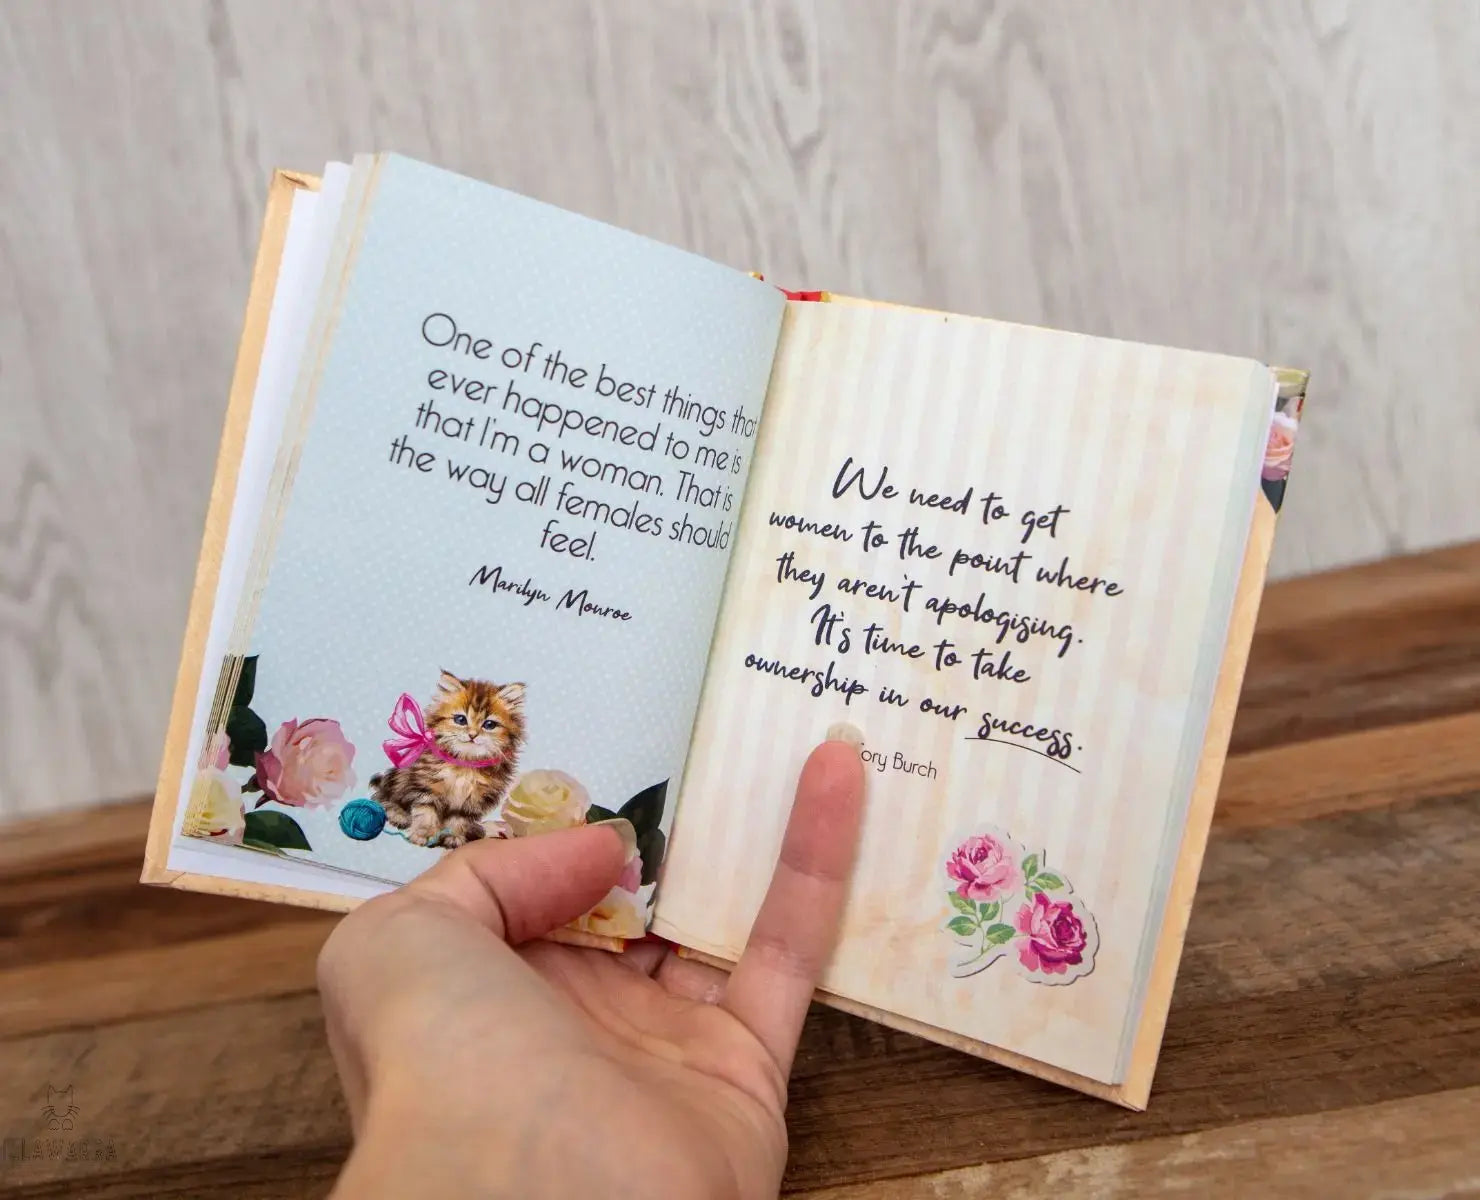 One of the best things that
ever happened to me is
that I'm a woman. That is
the way all females should
feel.
Marilyn Monroe
We need to get
women to the point where
they aren't apologising.
It's time to take
ownership in our success.
ory Burch
ILLAWARRA